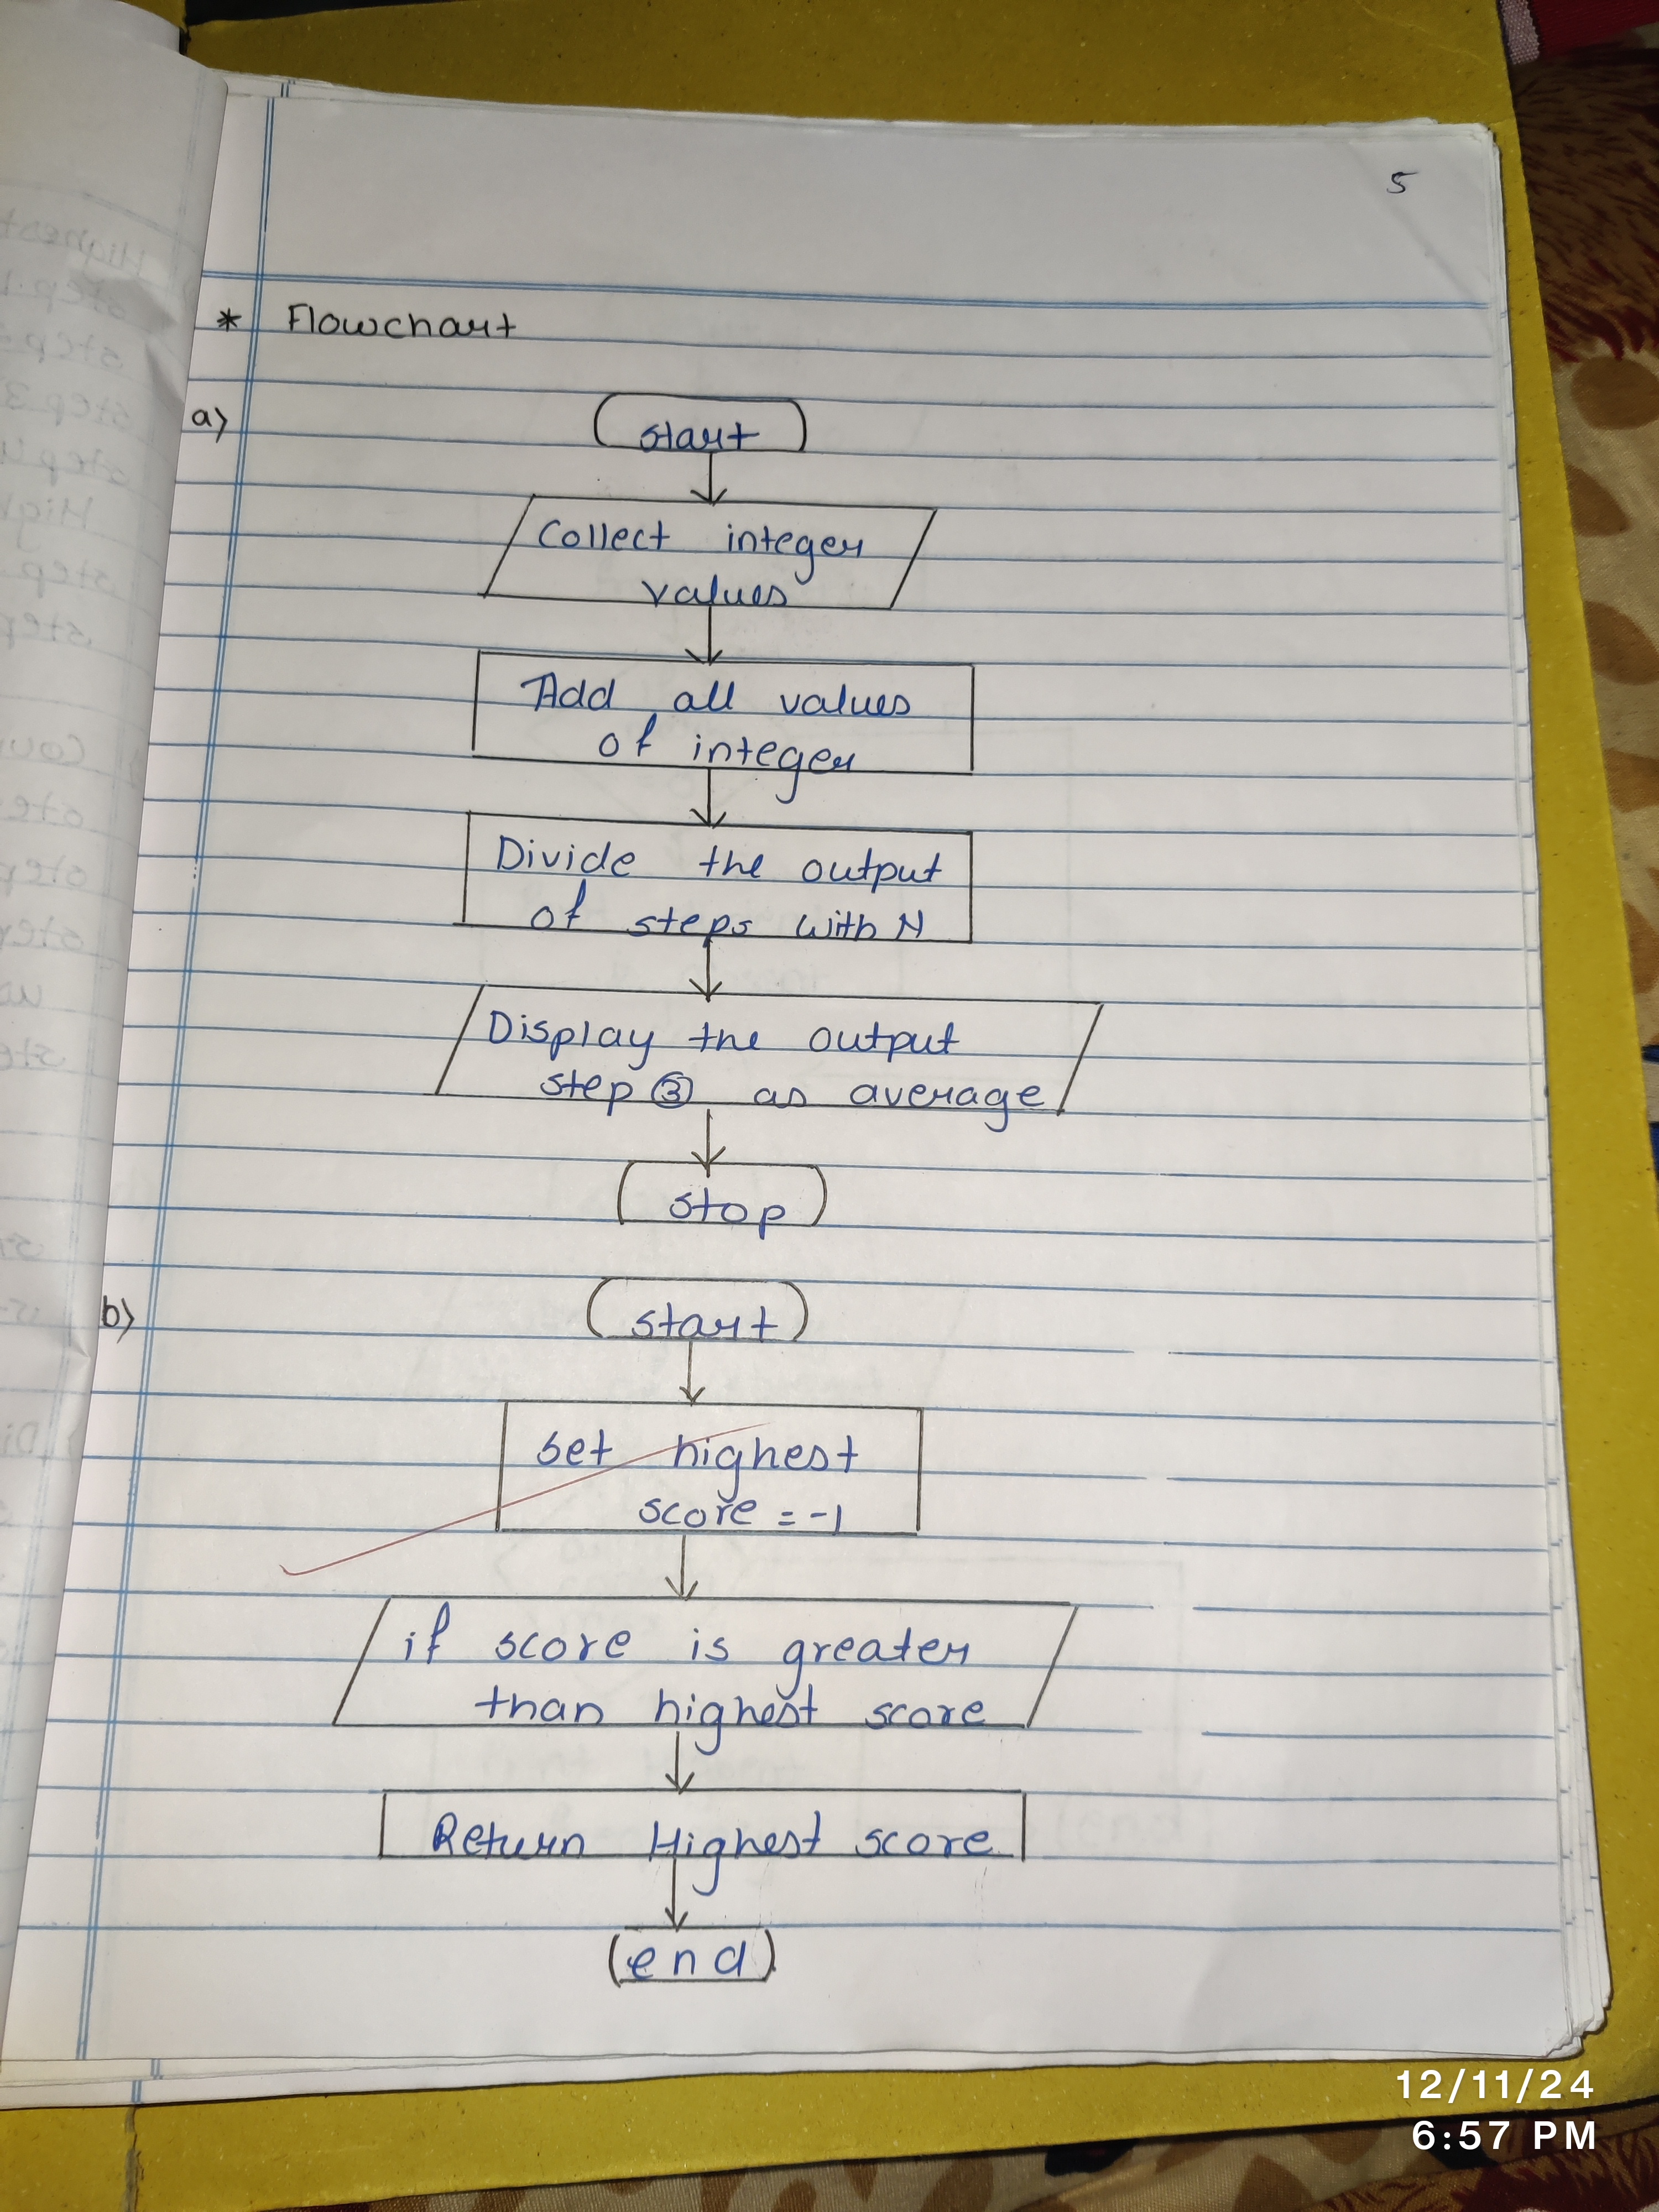 5
* Flowchart
a)
start
Collect integer
values
Add all values
of integer
Divide the output
of steps with N
Display the output
step ③ as average
stop
b)
start
set highest
score = -1
if score is greater
than highest score
Return Highest score
end
12/11/24
6:57 PM